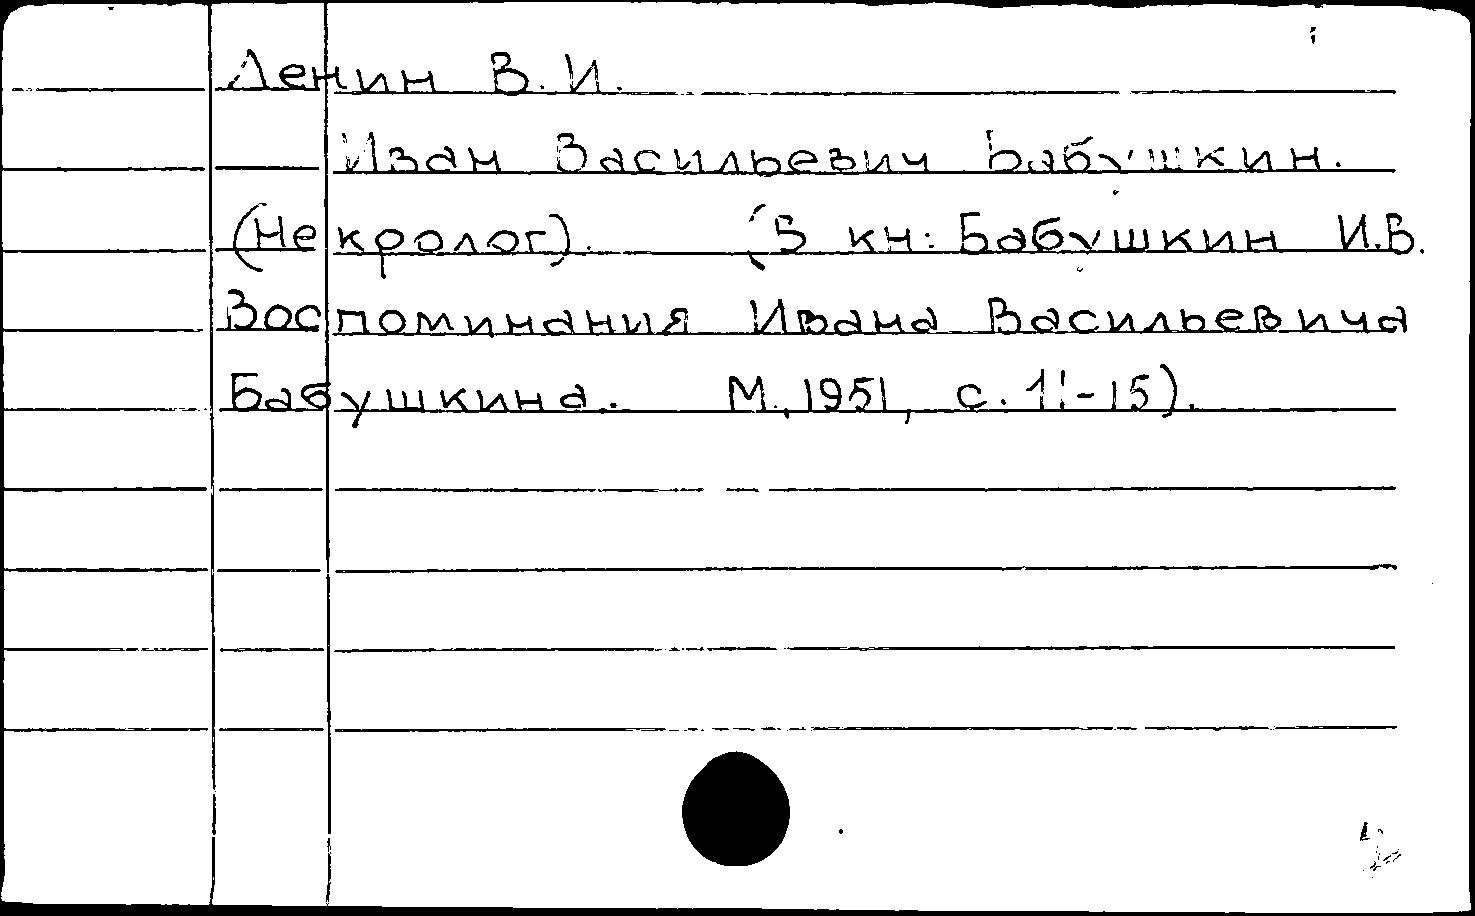 Ленин В. И.
Иван Васильевич Бабушкин.
(Некролог). (В кн: Бабушкин И.В.
Воспоминания Ивана Васильевича
Бабушкина. М., 1951, с.